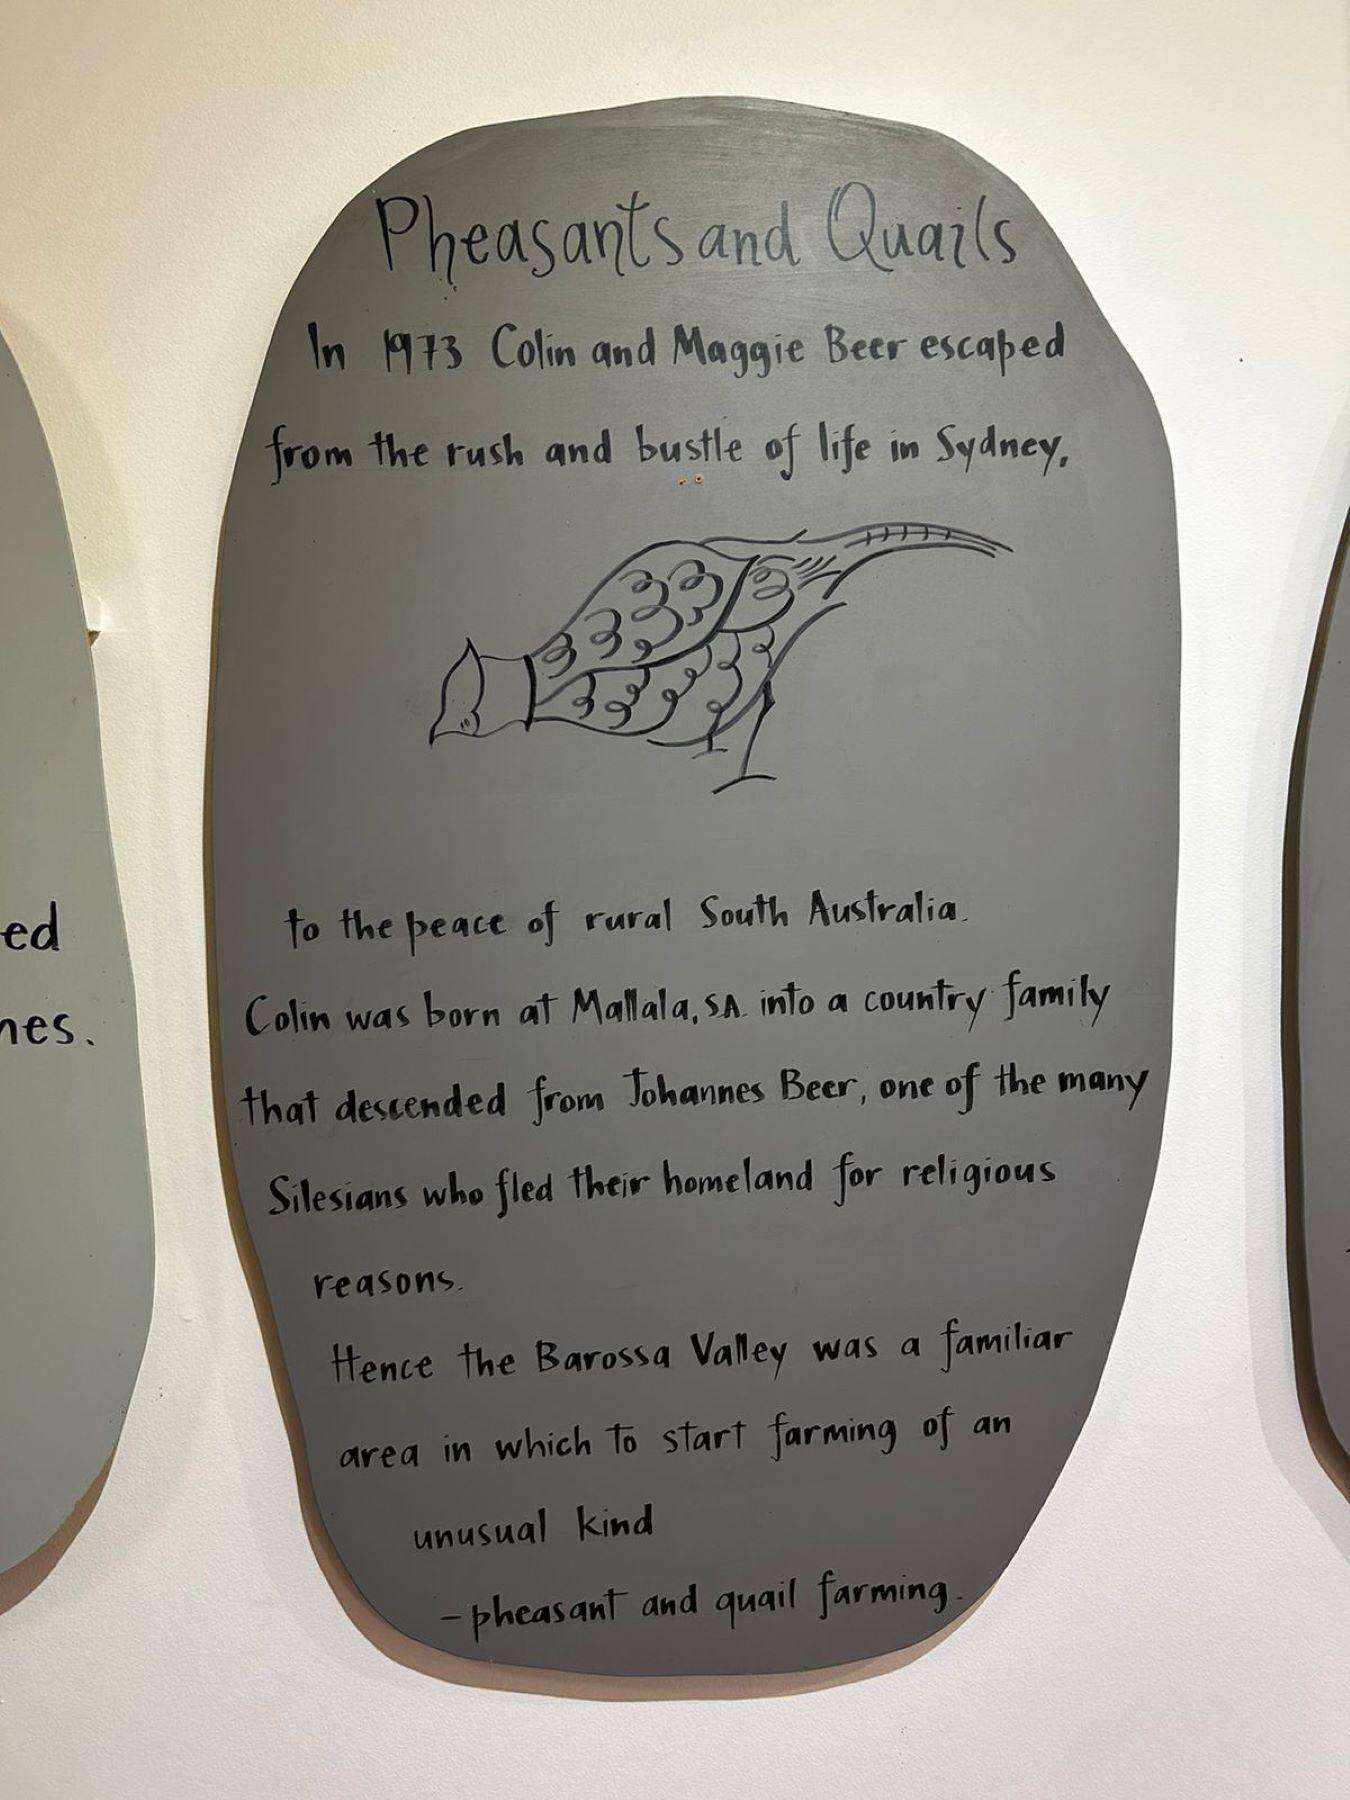 Pheasants and Quails
In 1973 Colin and Maggie Beer escaped
from the rush and bustle of life in Sydney,
to the peace of rural South Australia.
Colin was born at Mallala, SA. into a country family
that descended from Johannes Beer, one of the many
Silesians who fled their homeland for religious
reasons.
Hence the Barossa Valley was a familiar
area in which to start farming of an
unusual kind
- pheasant and quail farming.
ed
nes.